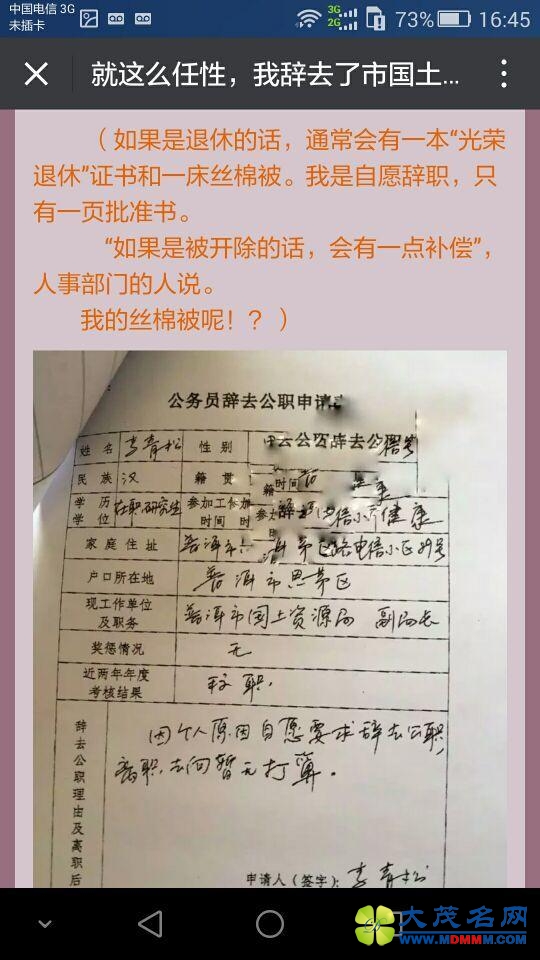 中国电信 3G
未插卡
3G
2G
73%
16:45
就这么任性，我辞去了市国土...
（如果是退休的话，通常会有一本“光荣
退休”证书和一床丝棉被。我是自愿辞职，只
有一页批准书。
“如果是被开除的话，会有一点补偿”，
人事部门的人说。
我的丝棉被呢！？）
公务员辞去公职申请
姓名 李青松 性别
民族 汉 籍贯
学历 在职研究生 参加工作
学位 时间 健康
家庭住址 普洱市 电信小区39号
户口所在地 普洱市思茅区
现工作单位 普洱市国土资源局 副局长
及职务
奖惩情况 无
近两年年度 称职.
考核结果
辞去公职理由及离职后
因个人原因自愿要求辞去公职,
离职去向暂无打算.
申请人（签字）：李青松
大茂名网
WWW.MDMMM.COM